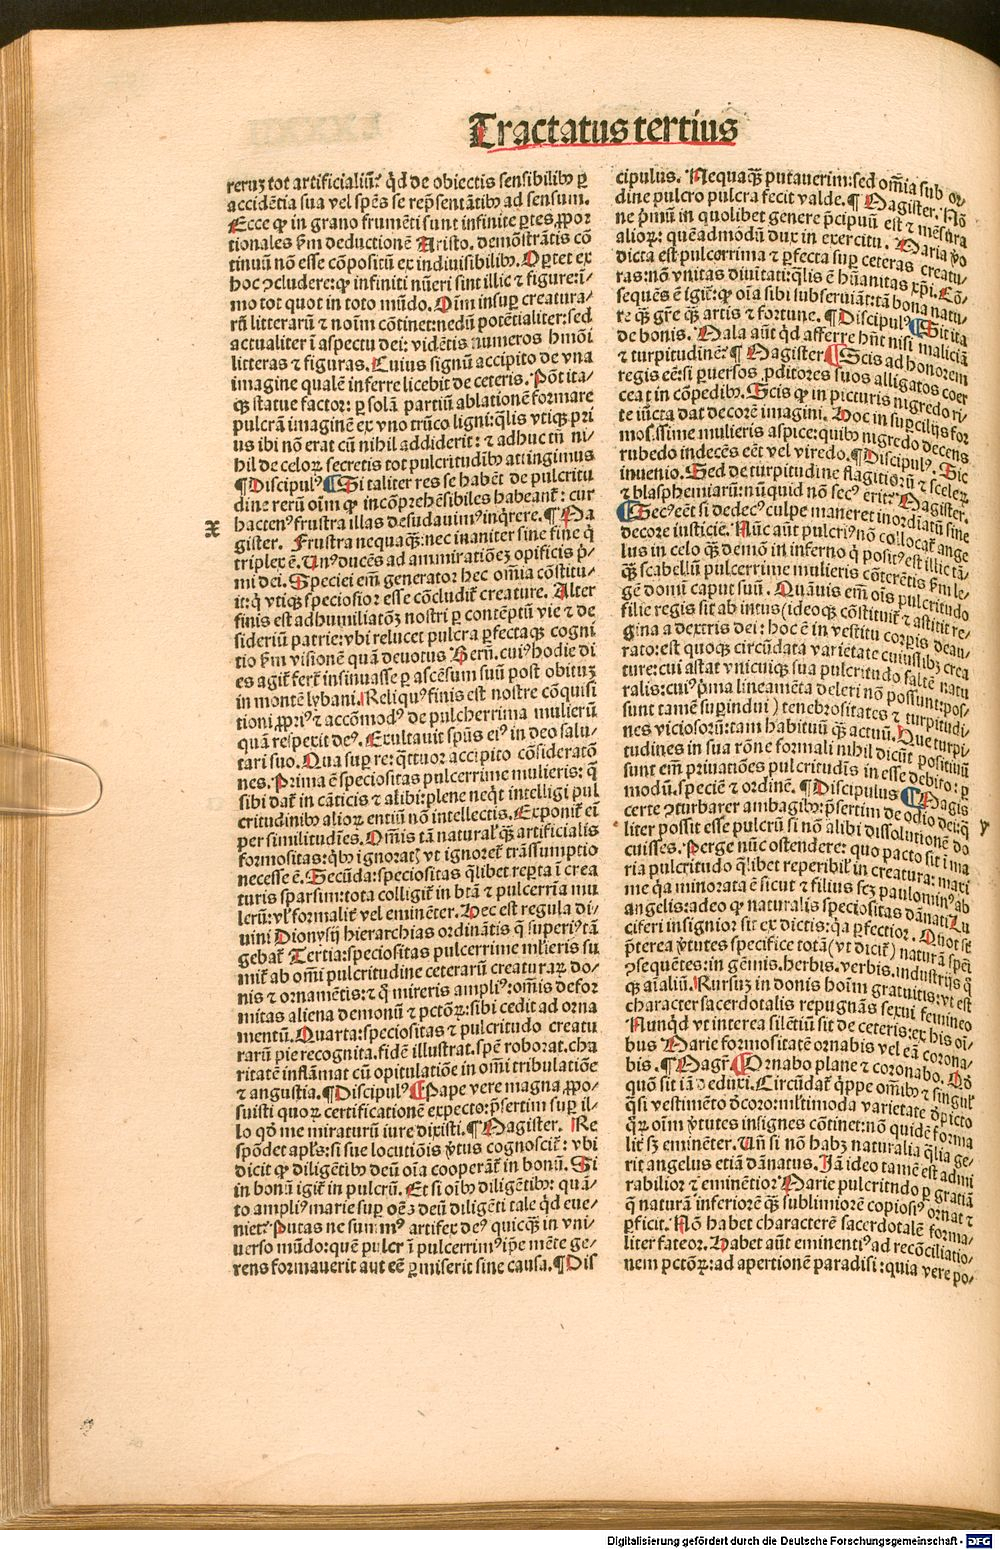 Tractatus tertius
reruʒ tot artificialiū? q̇d de obiectis sensibilibꝰ ꝑ
accidētia sua vel spēs se rep̄sentātibꝰ ad sensum.
Ecce ꝙ in grano frumēti sunt infinite ꝑtes ꝓpor
tionales ẜm deductionē Aristo. demōstrātis cō
tinuū nō esse cōpositū ex indiuisibilibꝰ. Oꝑtet ex
hoc ↄcludere: ꝙ infiniti nūeri sint illic ⁊ figure: ī-
mo tot quot in toto mūdo. Oīm insuꝑ creatura-
rū litterarū ⁊ noīm cōtinet: nedū potētialiter: sed
actualiter ī aspectu dei: vidētis numeros hmōi
litteras ⁊ figuras. Cuius signū accipito de vna
imagine qualē inferre licebit de ceteris. Pōt ita-
qꝫ statue factor: ꝑ solā partiū ablationē formare
pulcrā imaginē ex vno trūco ligni: q̄lis vtiqꝫ pri
us ibi nō erat cū nihil addiderit: ⁊ adhuc tn̄ ni-
hil de celoꝝ secretis tot pulcritudībꝰ attingimus
¶ Discipulꝰ ¶ Si taliter res se habēt de pulcritu
dine rerū oīm ꝙ incōprehēsibiles habeant᷑: cur
hactenꝰ frustra illas desudauimꝰ inq̇rere. ¶ Ma
x
gister. Frustra nequaqꝫ: nec inaniter sine fine q̇
triplex ē. Unꝰ ducēs ad ammirationeʒ opificis p̄-
mi dei. Speciei em̄ generator hec om̄ia cōstitu-
it: q̇ vtiqꝫ speciosior esse cōcludit᷑ creature. Alter
finis est ad humiliatōʒ nostri ꝑ contēptū vie ⁊ de
sideriū patrie: vbi relucet pulcra ꝑfectaqꝫ cogni
tio ẜm visionē quā deuotus Bern̄. cuiꝰ hodie di
es agit᷑ fert᷑ insinuasse ꝑ ascēsum suū post obituʒ
in montē lybani. Reliquꝰ finis est nostre cōquisi
tioni ꝓpriꝰ ⁊ accōmodꝰ de pulcherrima mulierū
quā respexit deꝰ. Exultauit spūs eiꝰ in deo salu-
tari suo. Qua suꝑ re: q̄ttuor accipito cōsideratō
nes. Prima ē speciositas pulcerrime mulieris: q̄
sibi dat᷑ in cāticis ⁊ alibi: plene neq̇t intelligi pul
critudinibꝰ alioꝝ entiū nō intellectis. Exponit᷑ ei
per similitudīes. Om̄is tā natural᷑ qꝫ artificialis
formositas: q̄bꝰ ignoratʒ vt ignoret᷑ trāssumptio
necesse ē. Secūda: speciositas q̄libet reꝑta ī crea
turis sparsum: tota colligit᷑ in btā ⁊ pulcerrīa mu
lerū: vl᷑ formalit᷑ vel eminēter. Hec est regula di-
uini Dionysij hierarchias ordinātis q̄ superiꝰ tā
gebat᷑ Tertia: speciositas pulcerrime ml᷑ieris su
mit᷑ ab om̄i pulcritudine ceterarū creaturaꝝ do-
nis ⁊ ornamētis: ⁊ q̇ mireris ampliꝰ: om̄is defor
mitas aliena demonū ⁊ pctōꝝ: sibi cedit ad orna
mentū. Quarta: speciositas ⁊ pulcritudo creatu
rarū pie recognita. fidē illustrat. spē roborat. cha
ritatē inflāmat cū opitulatiōe in om̄i tribulatiōe
⁊ angustia. ¶ Discipulꝰ ¶ Pape vere magna ꝓpo-
suisti quoꝝ certificationē expecto: p̄sertim suꝑ il-
lo qd̄ me miraturū iure dixisti. ¶ Magister. Re
spōdet apl᷑s: si sue locutiōis v̇tus cognoscit᷑: vbi
dicit ꝙ diligētibꝰ deū oīa cooperāt᷑ in bonū. Si
in bonū igit᷑ in pulcrū. Et si oībꝰ diligētibꝰ: quā-
to ampliꝰ marie suꝑ oēʒ deū diligēti tale q̇d eue-
niet? Putas ne summꝰ artifex deꝰ quicqꝫ in vni-
uerso mūdo: quē pulcr ī pulcerrimꝰ ip̄e mēte ge-
rens formauerit aut eē ꝑmiserit sine causa. ¶ Dis
cipulus. Nequaqꝫ putauerim: sed om̄ia sub or-
dine pulcro pulcra fecit valde. ¶ Magister. Nō
ne p̄mū in quolibet genere p̄cipuū est ⁊ mēsura
alioꝝ: quēadmodū dux in exercitu. Maria v̇o
dicta est pulcerrima ⁊ ꝑfecta suꝑ ceteras creatu-
ras: nō vnitas diuītati: q̄lis ē hūanitas xp̄i. Cō-
sequēs ē igit᷑: ꝙ oīa sibi subseruiāt: tā bona natu-
re qꝫ gr̄e qꝫ artis ⁊ fortune. ¶ Discipulꝰ ¶ Sit ita
de bonis. Mala aūt q̇d afferre hn̄t nisi maliciā
⁊ turpitudinē? ¶ Magister ¶ Scis ad honorem
regis eē: si ꝑuersos ꝓditores suos alligatos coer
ceat in cōpedibꝰ. Scis ꝙ in picturis nigredo ri-
te iūcta dat decorē imagini. Hoc in suꝑcilijs for
mosissime mulieris aspice: quibꝰ nigredo decens
rubedo indecēs eēt vel viredo. ¶ Discipulꝰ. Sic
inuenio. Sed de turpitudine flagitioꝝ ⁊ sceleꝝ
⁊ blasphemiarū: nūquid nō secꝰ erit? Magister.
¶ Secꝰ eēt si dedecꝰ culpe maneret inordīatū sine
decore iusticie. Nūc aūt pulcriꝰ nō collocat᷑ ange
lus in celo qꝫ demō in inferno q̇ positꝰ est illic tā-
qꝫ scabellū pulcerrime mulieris cōterētis ẜm le-
gē domī caput suū. Quāuis em̄ oīs pulcritudo
filie regis sit ab intus (ideoqꝫ cōstituit᷑ ⁊ astitit re-
gina a dextris dei: hoc ē in vestitu corꝑis deau-
rato: est quoqꝫ circūdata varietate cuiuslibꝫ crea
ture: cui astat vnicuiqꝫ sua pulcritudo saltē natu
ralis: cuiꝰ p̄ma lineamēta deleri nō possunt: pos-
sunt tamē suꝑindui) tenebrositates ⁊ turpitudi-
nes viciosoꝝ: tam habituū qꝫ actuū. Que turpi-
tudines in sua rōne formali nihil dicūt positiuū
sunt em̄ priuatiōes pulcritudīs in esse debito: ꝑ
modū. speciē ⁊ ordinē. ¶ Discipulus ¶ Magis
certe ↄturbarer ambagibꝰ: p̄sertim de odio dei: q̄
y
liter possit esse pulcrū si nō alibi dissolutionē do
cuisses. Perge nūc ostendere: quo pacto sit ī ma
ria pulcritudo q̄libet reperibil᷑ in creatura: maxi
me q̇a minorata ē sicut ⁊ filius seʒ paulominꝰ ab
angelis: adeo ꝙ naturalis speciositas dānati Lu
ciferi insignior sit ex dictis: q̇a ꝑfectior. Quot sūt
p̄terea v̇tutes specifice totā (vt dicit᷑) naturā spēi
ↄsequētes: in gēmis. herbis. verbis. industrijs q̄
qꝫ aīaliū. Rursuʒ in donis hoīm gratuitis: vt est
character sacerdotalis repugnās sexui femineo
Nunq̇d vt interea silētiū sit de ceteris: ex his oī-
bus Marie formositatē ornabis vel eā corona-
bis. ¶ Magr̄ ¶ Ornabo plane ⁊ coronabo. Qd̄
quō sit iā ꝺeduxi. Circūdat᷑ q̇ppe om̄ibꝰ ⁊ singul᷑
q̄si vestimēto dec̄oro: ml᷑timoda varietate dp̄icto
q̇ꝝ oīm v̇tutes insignes cōtinet: nō quidē forma
lit᷑ sʒ eminēter. Un̄ si nō habʒ naturalia q̄lia ge-
rit angelus etiā dānatus. Iā ideo tamē est admi
rabilior ⁊ eminētior Marie pulcritndo ꝑ gratiā
q̄ naturā inferiorē qꝫ sublimiorē copiosiꝰ ornat ⁊
ꝑficit. Nō habet characterē sacerdotalē forma-
liter fateor. Habet aūt eminentiꝰ ad recōciliatio-
nem pctōꝝ: ad apertionē paradisi: quia vere po-
Digitalisierung gefördert durch die Deutsche Forschungsgemeinschaft - DFG